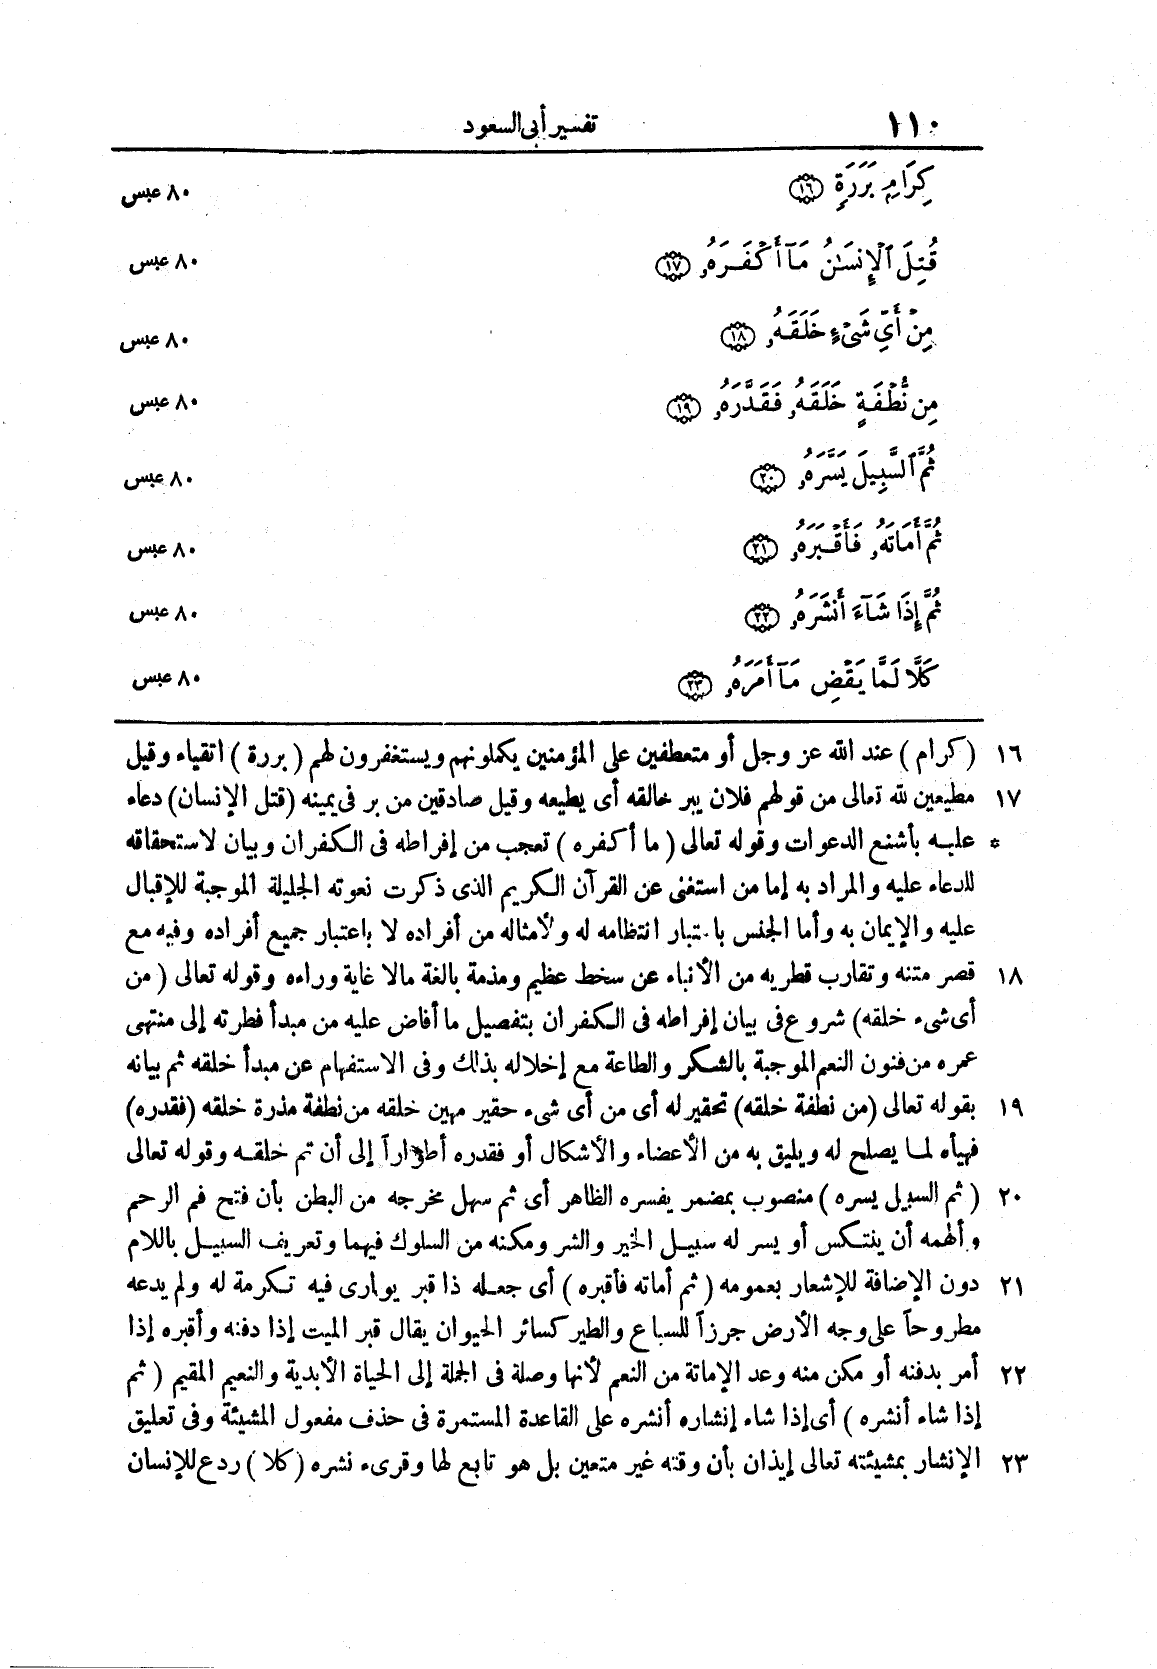 ١١٠ تفسير أبى السعود
كِرَامِۭ بَرَرَةٖ ١٦ ٨٠ عبس
قُتِلَ ٱلۡإِنسَٰنُ مَآ أَكۡفَرَهُۥ ١٧ ٨٠ عبس
مِنۡ أَيِّ شَيۡءٍ خَلَقَهُۥ ١٨ ٨٠ عبس
مِن نُّطۡفَةٍ خَلَقَهُۥ فَقَدَّرَهُۥ ١٩ ٨٠ عبس
ثُمَّ ٱلسَّبِيلَ يَسَّرَهُۥ ٢٠ ٨٠ عبس
ثُمَّ أَمَاتَهُۥ فَأَقۡبَرَهُۥ ٢١ ٨٠ عبس
ثُمَّ إِذَا شَآءَ أَنشَرَهُۥ ٢٢ ٨٠ عبس
كَلَّا لَمَّا يَقۡضِ مَآ أَمَرَهُۥ ٢٣ ٨٠ عبس
١٦ (كرام) عند الله عز وجل أو متعطفين على المؤمنين يكملونهم ويستغفرون لهم (بررة) اتقياء وقيل
١٧ مطيعين لله تعالى من قولهم فلان يبر خالقه أى يطيعه وقيل صادقين من بر فى يمينه (قتل الإنسان) دعاء
* عليه بأشنع الدعوات وقوله تعالى (ما أكفره) تعجب من إفراطه فى الكفران وبيان لاستحقاقه
للدعاء عليه والمراد به إما من استغنى عن القرآن الكريم الذى ذكرت نعوته الجليلة الموجبة للإقبال
عليه والإيمان به وأما الجنس باعتبار انتظامه له ولأمثاله من أفراده لا باعتبار جميع أفراده وفيه مع
١٨ قصر متنه وتقارب قطريه من الأنباء عن سخط عظيم ومذمة بالغة مالا غاية وراءه وقوله تعالى (من
أى شىء خلقه) شروع فى بيان إفراطه فى الكفران بتفصيل ما أفاض عليه من مبدأ فطرته إلى منتهى
عمره من فنون النعم الموجبة بالشكر والطاعة مع إخلاله بذلك وفى الاستفهام عن مبدأ خلقه ثم بيانه
١٩ بقوله تعالى (من نطفة خلقه) تحقير له أى من أى شىء حقير مهين خلقه من نطفة مذرة خلقه (فقدره)
فهيأه لما يصلح له ويليق به من الأعضاء والأشكال أو فقدره أطواراً إلى أن تم خلقه وقوله تعالى
٢٠ (ثم السبيل يسره) منصوب بمضمر يفسره الظاهر أى ثم سهل مخرجه من البطن بأن فتح فم الرحم
وألهمه أن ينتكس أو يسر له سبيل الخير والشر ومكنه من السلوك فيهما وتعريف السبيل باللام
٢١ دون الإضافة للإشعار بعمومه (ثم أماته فأقبره) أى جعله ذا قبر يوارى فيه تكرمة له ولم يدعه
مطروحاً على وجه الأرض جرزاً للسباع والطير كسائر الحيوان يقال قبر الميت إذا دفنه وأقبره إذا
٢٢ أمر بدفنه أو مكن منه وعد الإماتة من النعم لأنها وصلة فى الجملة إلى الحياة الأبدية والنعيم المقيم (ثم
إذا شاء أنشره) أى إذا شاء إنشاره أنشره على القاعدة المستمرة فى حذف مفعول المشيئة وفى تعليق
٢٣ الإنشار بمشيئته تعالى إيذان بأن وقته غير متعين بل هو تابع لها وقرىء نشره (كلا) ردع للإنسان